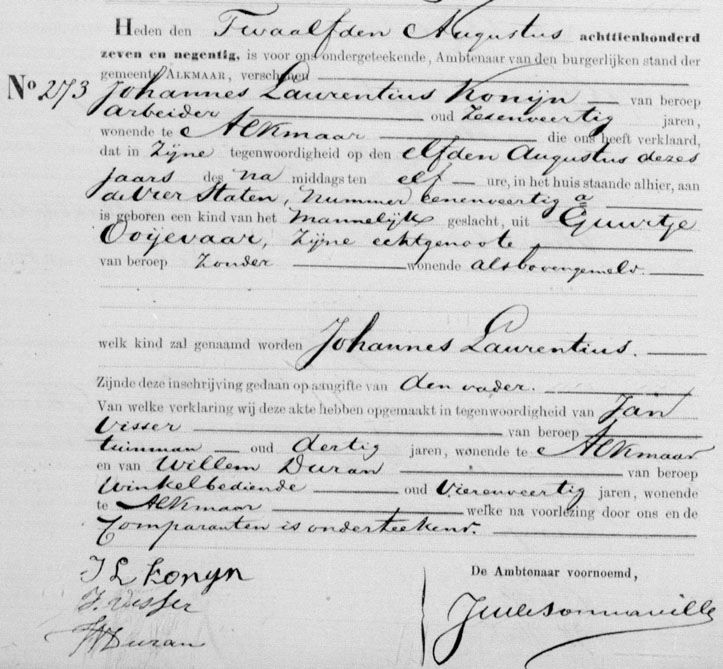 Heden den Twaalfden Augustus achttienhonderd
zeven en negentig, is voor ons ondergeteekende, Ambtenaar van den burgerlijken stand der
gemeente ALKMAAR, verschenen
No. 273
Johannes Laurentius Konijn van beroep
arbeider oud Zesenveertig jaren,
wonende te Alkmaar die ons heeft verklaard,
dat in Zijne tegenwoordigheid op den elfden Augustus dezes
jaars des na middags ten elf ure, in het huis staande alhier, aan
de Vier Staten, Nummer eenenveertig a
is geboren een kind van het Mannelijk geslacht, uit Guurtje
Ooijevaar, Zijne echtgenoote
van beroep Zonder wonende als bovengemeld.
welk kind zal genaamd worden Johannes Laurentius.
Zijnde deze inschrijving gedaan op aangifte van den vader.
Van welke verklaring wij deze akte hebben opgemaakt in tegenwoordigheid van Jan
Visser van beroep
tuinman oud dertig jaren, wonende te Alkmaar
en van Willem Duran van beroep
Winkelbediende oud Vierenveertig jaren, wonende
te Alkmaar welke na voorlezing door ons en de
Comparanten is onderteekend.
J L Konyn
J. Visser
W Duran
De Ambtenaar voornoemd,